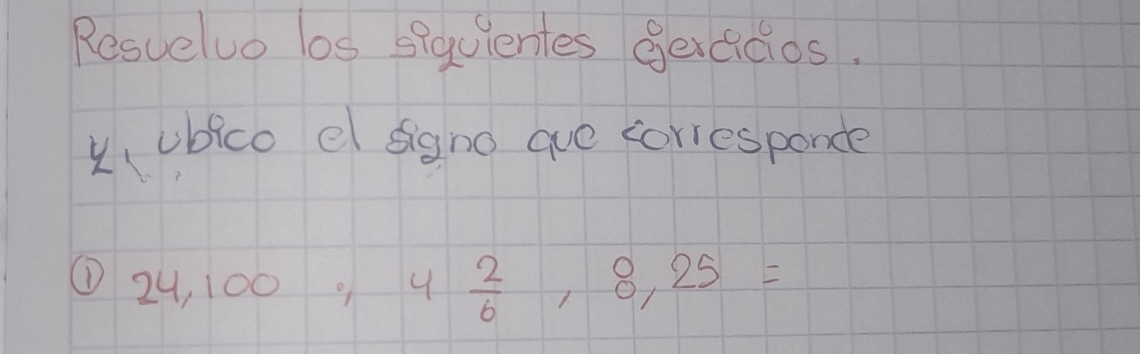 Resuelvo los siguientes ejercicios.
y, ubico el signo que corresponde
① 24,100 ; 4 2/6 , 8,25 =